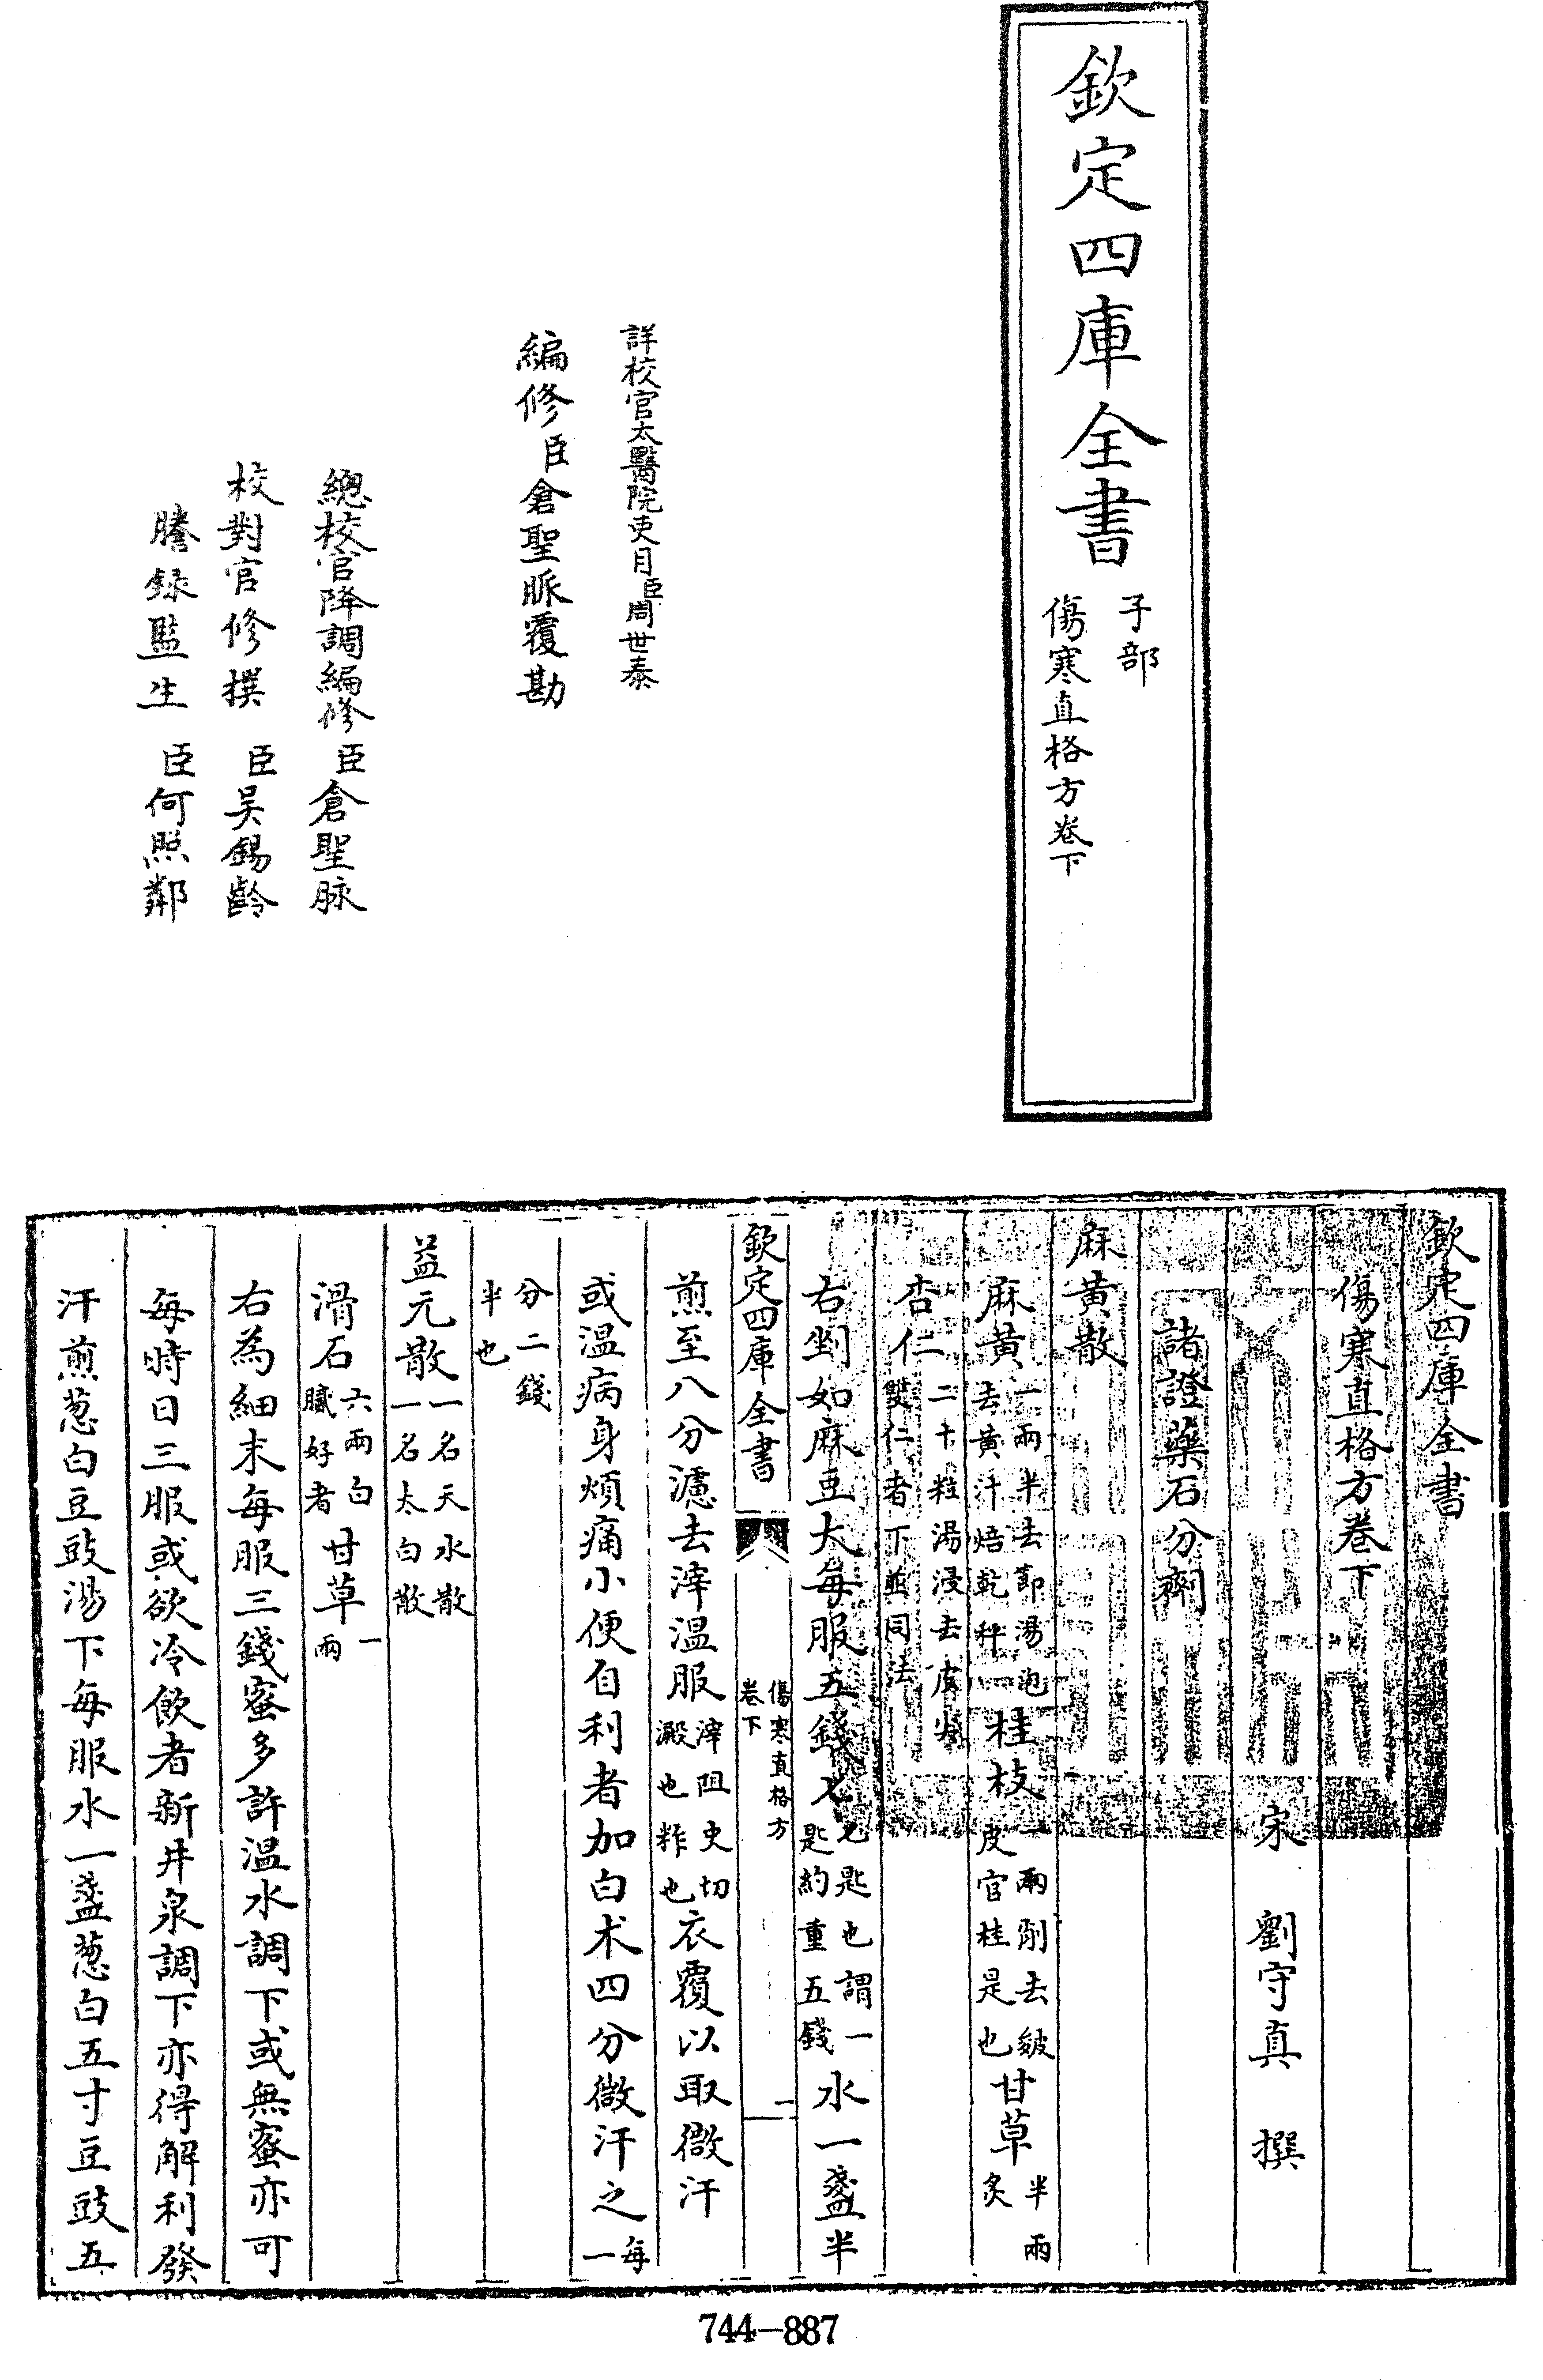 欽定四庫全書
子部
傷寒直格方卷下
詳校官太醫院吏目臣周世泰
編修臣倉聖脈覆勘
總校官降調編修臣倉聖脉
校對官修撰臣吴錫齡
謄録監生臣何照鄰
欽定四庫全書
傷寒直格方卷下
宋 劉守真 撰
諸證藥石分劑
麻黄散
麻黄一兩半去節湯泡去黄汁焙乾秤桂枝一兩削去皴皮官桂是也甘草半兩炙
杏仁二十粒湯浸去皮尖雙仁者下並同法
右剉如麻豆大每服五錢匕匕匙也謂一匙約重五錢水一盞半
欽定四庫全書
傷寒直格方
卷下
二
煎至八分濾去滓温服滓阻史切澱也粼也衣覆以取微汗
或温病身煩痛小便自利者加白术四分微汗之每一
分二錢半也
益元散一名天水散一名太白散
滑石六兩白膩好者甘草一兩
右為細末每服三錢蜜多許温水調下或無蜜亦可
每時日三服或欲冷飲者新井泉調下亦得解利發
汗煎葱白豆豉湯下每服水一盞葱白五寸豆豉五
744-887